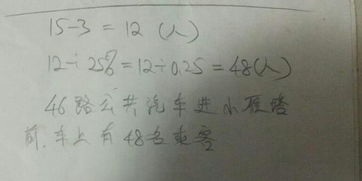 15-3=12(人)
12÷25%=12÷0.25=48(人)
46路公共汽车进小雁塔
前,车上有48名乘客